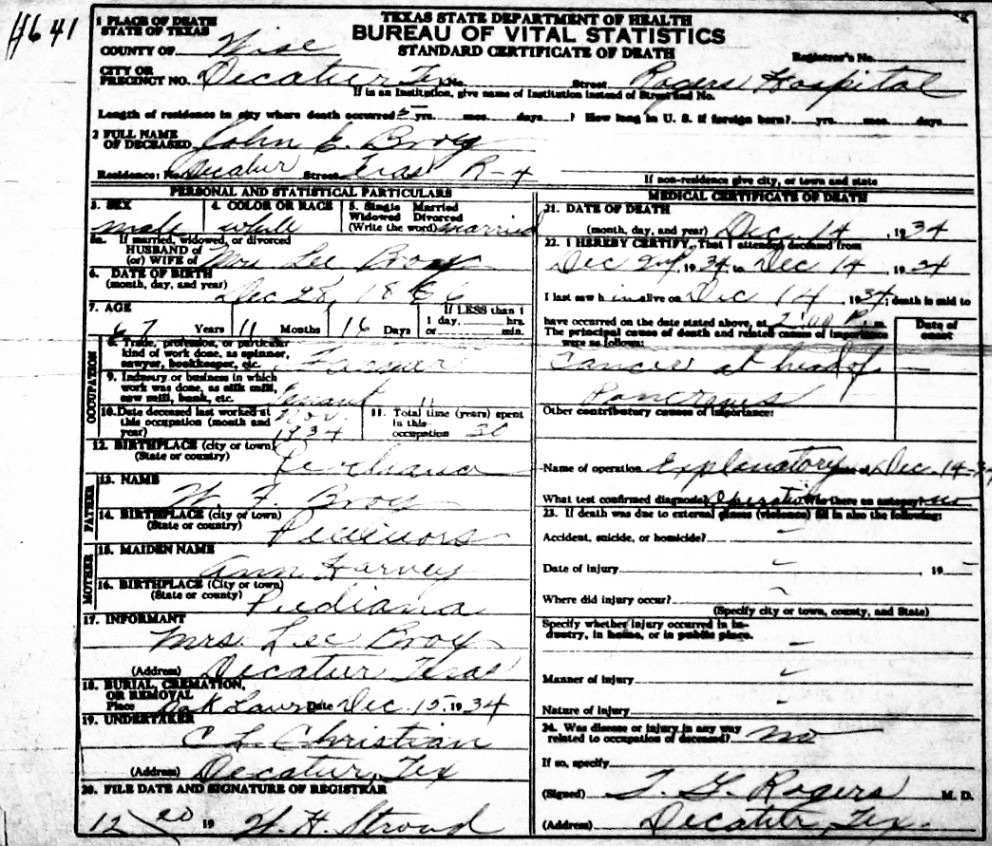 H641
TEXAS STATE DEPARTMENT OF HEALTH
BUREAU OF VITAL STATISTICS
STANDARD CERTIFICATE OF DEATH
1 PLACE OF DEATH
STATE OF TEXAS
COUNTY OF Wise
Registrar's No.
CITY OR PRECINCT NO. Decatur Tex No. Street Rogers Hospital
If in an Institution, give name of Institution instead of Street and No.
Length of residence in city where death occurred yrs. mos. days. ? How long in U. S. if foreign born? yrs. mos. days
2 FULL NAME OF DECEASED John E. Broy
Residence: No. Decatur Street Texas R-4
If non-residence give city, or town and state
PERSONAL AND STATISTICAL PARTICULARS
3. SEX male
4. COLOR OR RACE white
5. Single Married Widowed Divorced (Write the word) married
5a. If married, widowed, or divorced HUSBAND of (or) WIFE of Mrs Lee Broy
6. DATE OF BIRTH (month, day, and year) Dec 28, 1866
7. AGE 67 Years 11 Months 16 Days If LESS than 1 1 day, hrs. or min.
OCCUPATION
8. Trade, profession, or particular kind of work done, as spinner, sawyer, bookkeeper, etc. Farmer
9. Industry or business in which work was done, as silk mill, saw mill, bank, etc. Tenant "
10. Date deceased last worked at this occupation (month and year) Nov. 1934
11. Total time (years) spent in this occupation 30
12. BIRTHPLACE (city or town) (State or country)
FATHER
13. NAME W. F. Broy
14. BIRTHPLACE (city of town) (State or country)
MOTHER
15. MAIDEN NAME Ann Harvey
16. BIRTHPLACE (City or town) (State or county) Indiana
17. INFORMANT Mrs Lee Broy
(Address) Decatur Texas
18. BURIAL, CREMATION, OR REMOVAL
Place Oak Lawn Date Dec. 15, 1934
19. UNDERTAKER C L Christian
(Address) Decatur, Tex
20. FILE DATE AND SIGNATURE OF REGISTRAR
12 20 19 W. H. Stroud
MEDICAL CERTIFICATE OF DEATH
21. DATE OF DEATH
(month, day, and year) Dec. 14, 1934
22. I HEREBY CERTIFY, That I attended deceased from
Dec 2nd, 1934 to Dec 14, 1934
I last saw h im alive on Dec 14, 1934; death is said to
have occurred on the date stated above, at 2:00 P. m.
The principal cause of death and related causes of importance were as follows:
Date of onset
Cancer at head of
Pancreas
Other contributory causes of importance:
Name of operation Explanatory Date of Dec. 14-34
What test confirmed diagnosis? Operation Was there an autopsy? no
23. If death was due to external causes (violence) fill in also the following:
Accident, suicide, or homicide? -
Date of injury - , 19 -
Where did injury occur? -
(Specify city or town, county, and State)
Specify whether injury occurred in industry, in home, or in public place.
-
Manner of injury -
Nature of injury -
24. Was disease or injury in any way related to occupation of deceased? no
If so, specify
(Signed) T. G. Rogers M. D.
(Address) Decatur, Tex.